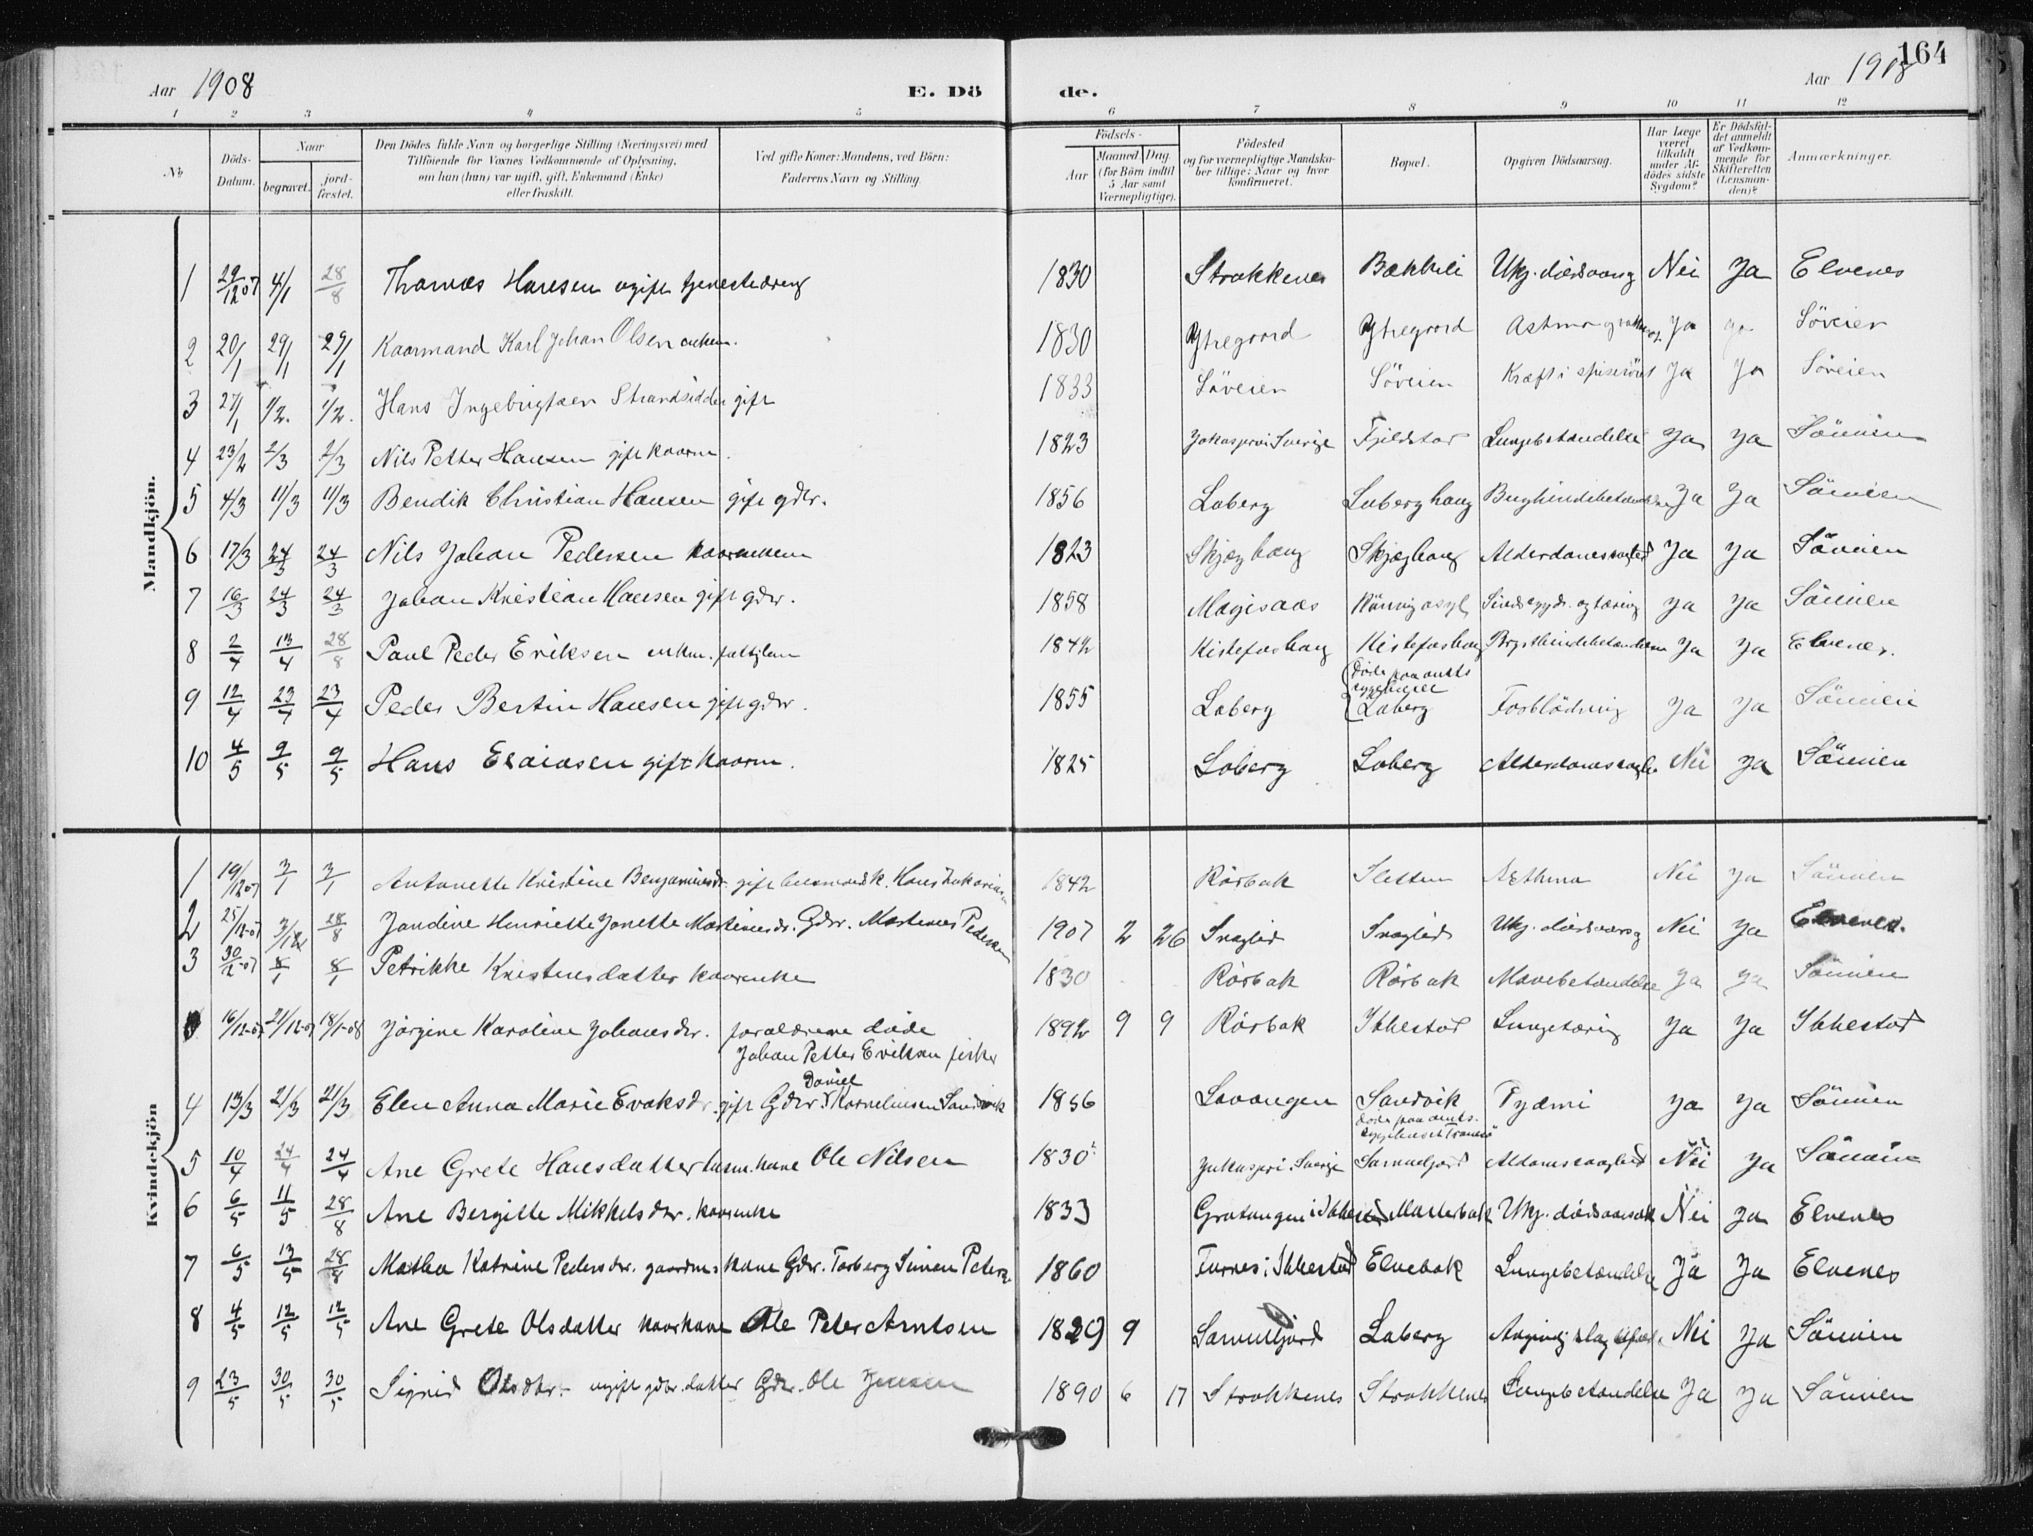 164
Aar 1908 E. Dö de. Aar 1908
1 2 3 4 5 6 7 8 9 10 11 12
No
Döds-Datum.
Naar
begravet.
jord-fæstet.
Den Dödes fulde Navn og borgerlige Stilling (Næringsvei) med
Tilföiende for Voxnes Vedkommende af Oplysning,
om han (hun) var ugift, gift, Enkemand (Enke)
eller fraskilt.
Ved gifte Koner: Mandens, ved Börn:
Faderens Navn og Stilling.
Födsels-
Aar
Maaned Dag
(for Börn indtil
5 Aar samt
Værnepligtige).
Födested
og for værnepligtige Mandska-
ber tillige: Naar og hvor
konfirmeret.
Bopæl.
Opgiven Dödsaarsag.
Har Læge
været
tilkaldt
under Af-
dödes sidste
Sygdom?
Er Dödsfal-
det anmeldt
af Vedkom-
mende for
Skifteretten
(Lensman-
den)?
Anmærkninger.
Mandkjön.
1 29/12 07 4/1 28/8 Thomas Hansen ugift tjenestedreng 1830 Strokkenes Bakkeli Ukj. dødsaarsag Nei Ja Elvenes
2 20/1 29/1 29/1 Kaarmand Karl Johan Olsen enkem. 1830 Ytregaard Ytregaard Astma Ja Ja Söveien
3 27/1 1/2. 1/2. Hans Ingebrigtsen Strandsidder gift 1833 Söveien Söveien Kræft i spiserøret Ja Ja Söveien
4 23/2 2/3 2/3 Nils Petter Hansen gift kaarm. 1823 Jukasjervi Sverige Fjeldstad Lungebetændelse Ja Ja Söveien
5 4/3 11/3 11/3 Bendik Christian Hansen gift gdbr. 1856 Laberg Laberghaug Brysthindebetændelse Ja Ja Söveien
6 17/3 24/3 24/3 Nils Johan Pedersen kaarenkem 1823 Skjæghaug Skjæghaug Alderdomssvaghed Ja Ja Söveien
7 16/3 24/3 24/3 Johan Kristian Hansen gift gdbr. 1858 Magisaas Rönvig asyl Sindssygd. og tæring Ja Ja Söveien
8 2/4 13/4 28/8 Paul Peder Eriksen enkm. fattiglem 1842 Kistefoshaug Kistefoshaug Brysthindebetændelse Ja Ja Elvenes.
Døde paa amts
sygehuset
9 12/4 23/4 23/4 Peder Bertin Hansen gift gdbr. 1855 Laberg Laberg Forblødning Ja Ja Söveien
10 4/5 9/5 9/5 Hans Esaiasen gift kaarm. 1825 Laberg Laberg Alderdomssvaghe. Nei Ja Söveien
Kvindekjön
1 19/12 07 3/1 3/1 Antonette Kristine Benjaminsdr. gift Hans Zakarias 1842 Rörbak Sletten Asthma Nei Ja Söveien
2 25/12-07 3/1 28/8 Jondine Henriette Jonette Martinesdr. Gdbr. Martines Pedersen 1907 2 26 Snøglid Snøglid Ukj. dødsaarsag Nei Ja Elvenes.
3 30/12-07 8/1 8/1 Petrikke Kristensdatter kaarenke 1830 Rörbak Rörbak Mavebetændelse Ja Ja Söveien
16/12-07 21/12-07 18/1-08 Jörgine Karoline Johansdr. forældrene døde 1892 9 9 Rörbak Ibbestad Lungetæring Ja Ja Ibbestad
Johan Petter Eriksen fisker
Daniel
4 13/3 21/3 21/3 Elen Anna Marie Evaksdr. gift Gdbr. Korneliusen Sandvik 1856 Lavangen Sandvik Pyæmi Ja Ja Söveien
Døde paa amts.
sygehuset Tromsö
5 10/4 24/4 24/4 Ane Grete Hansdatter husm. kone Ole Nilsen 1830 Jukasjervi. Sverige Sarmefjord Nei Ja Söveien
6 6/5 11/5 28/8 Ane Bergitte Mikkelsdtr. kaarenke 1833 Gratangen i Ibbestad Marterbak Ukj. dødsaarsak Nei Ja Elvenes
7 6/5 13/5 28/8 Mathea Katrine Pedersdtr. gaardm:s kone Gdbr. Torberg Simon Peters. 1860 Furnes i Ibbestad Elvebak Lungebetændelse Ja Ja Elvenes
8 4/5 12/5 12/5 Ane Grete Olsdatter kaarkone Ole Peter Arntsen 1829 9 Sarmefjord Laberg Nei Ja Söveien
9 23/5 30/5 30/5 Sigrid Olsdtr. ugift gdbr. datter Gdbr. Ole Jensen 1890 6 17 Strokkenes Strokkenes Lungebetændelse Ja Ja Söveien